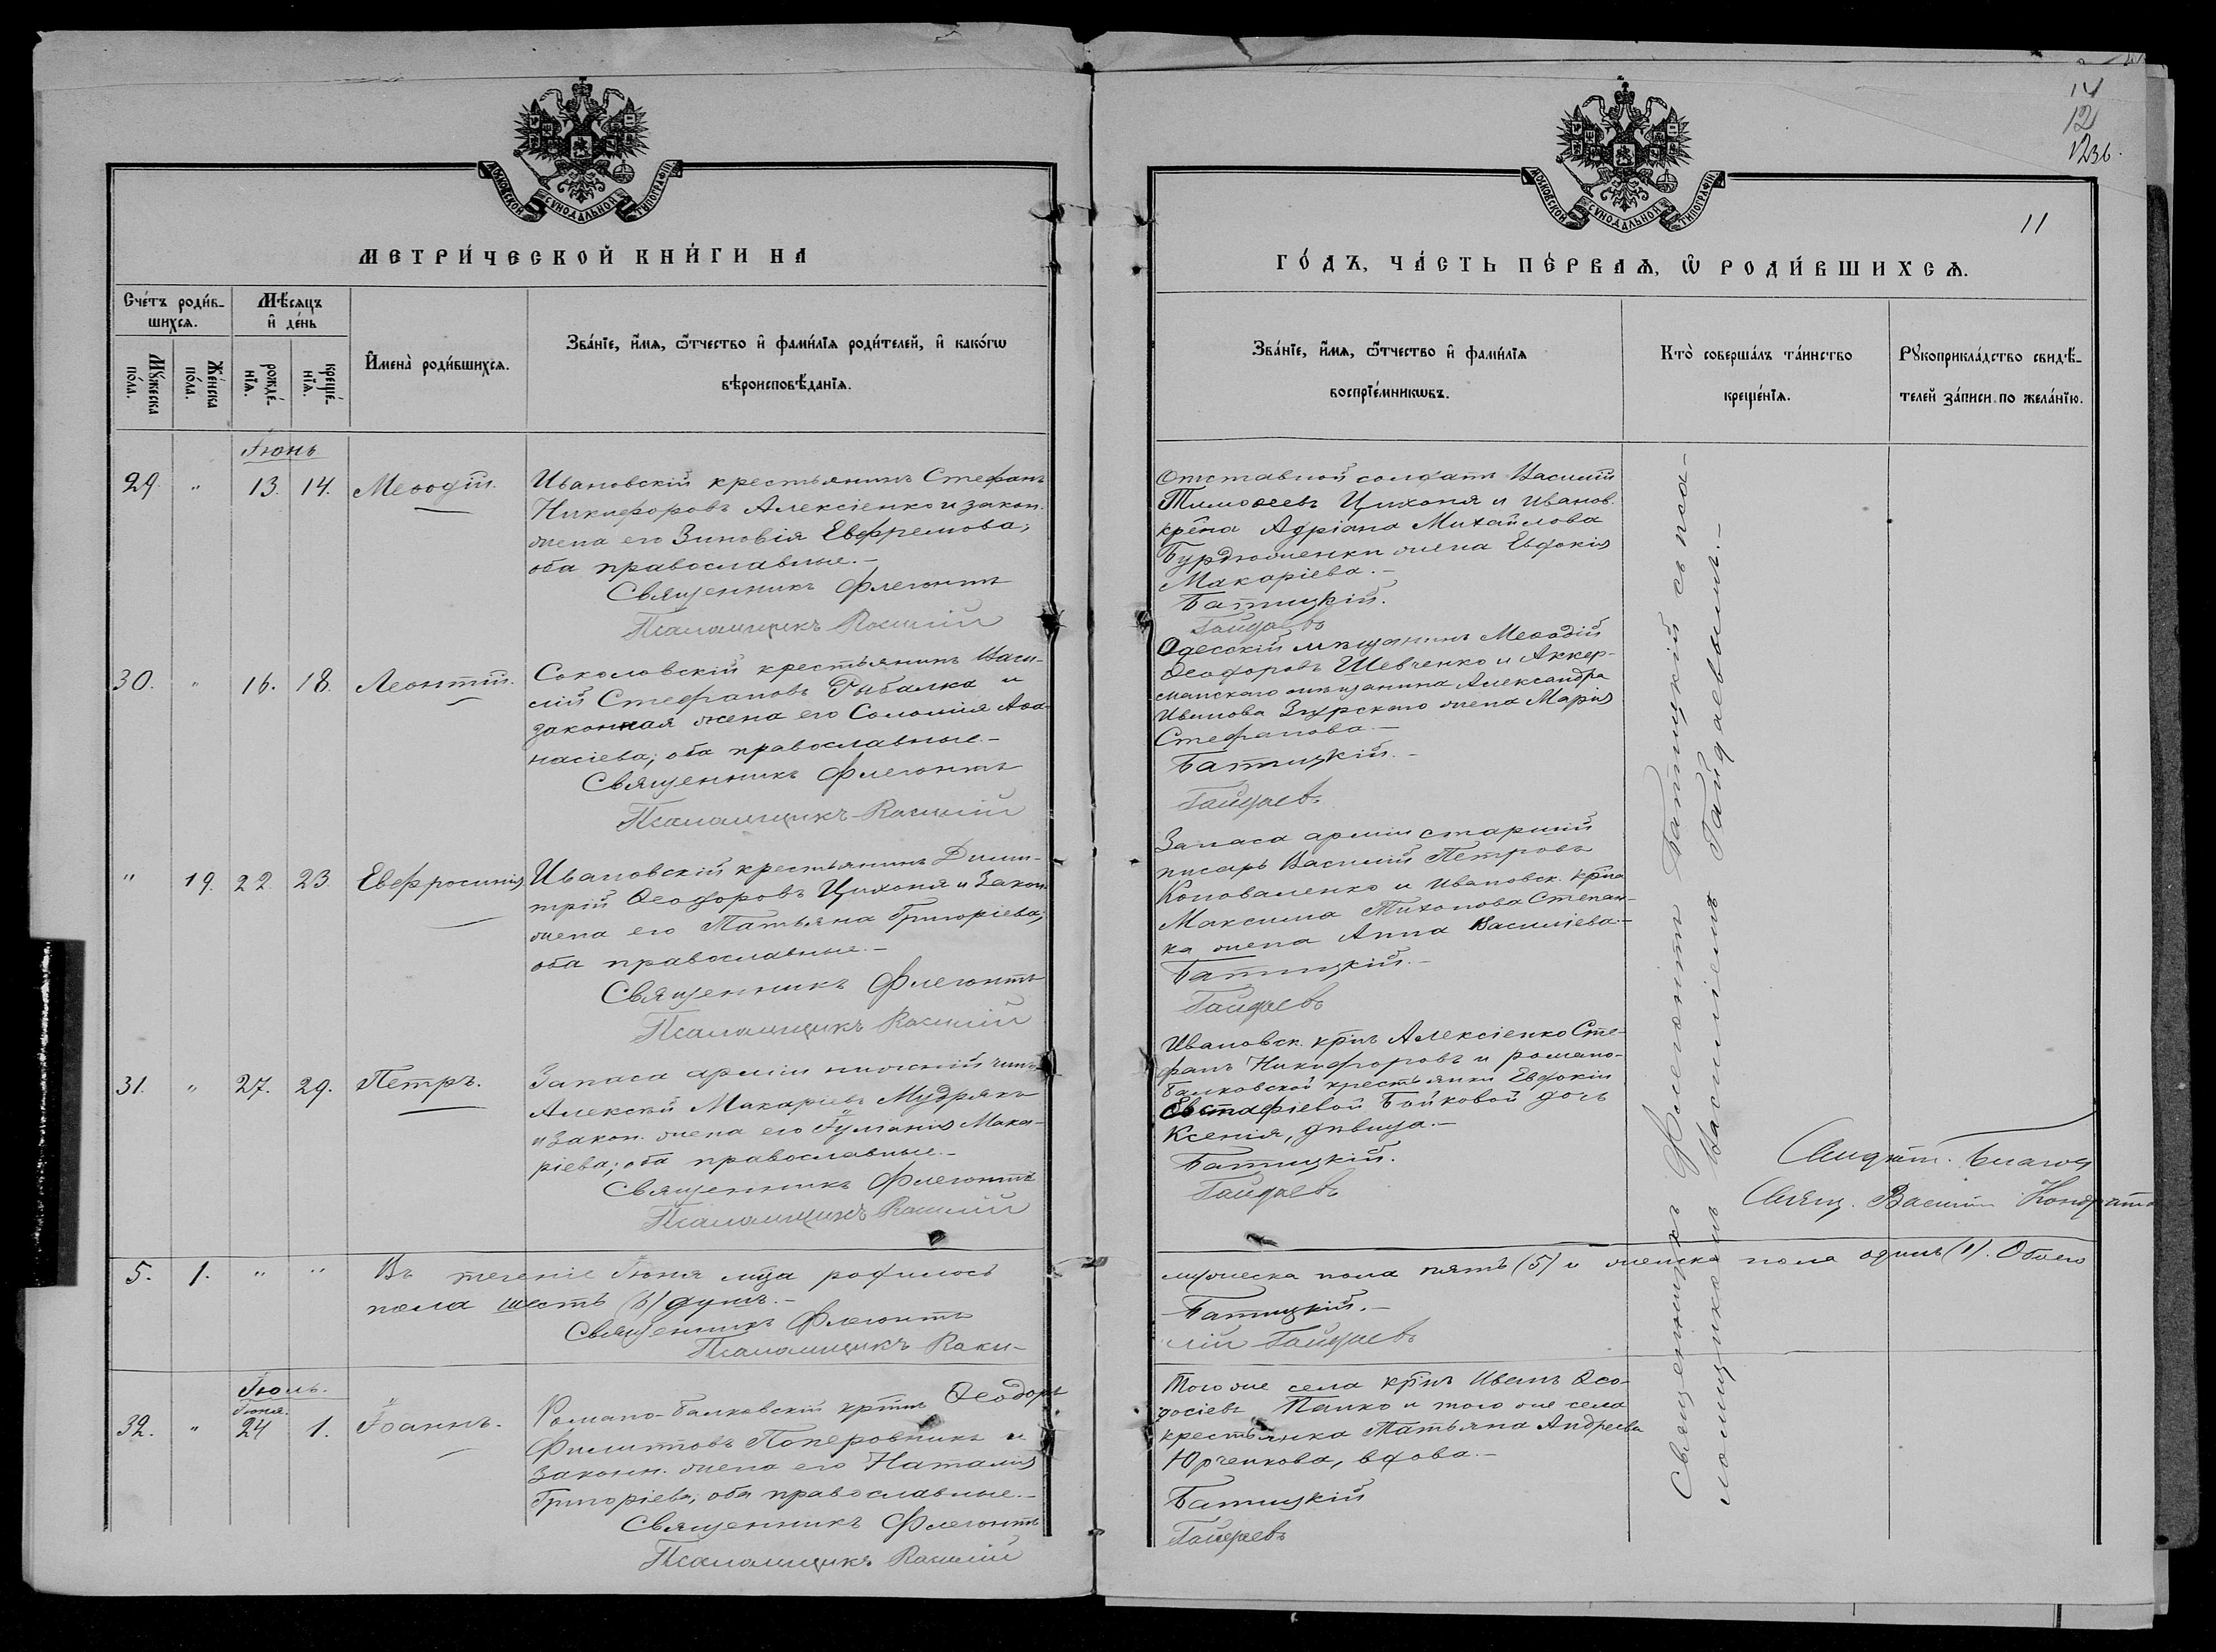 МОСКОВСКОЙ СѴНОДАЛЬНОЙ ТИПОГРАФІИ.
МЕТРИ́ЧЕСКОЙ КНИ́ГИ НА
Сче́тъ роди́в-
шихсѧ.
Мѣсѧцъ
и҆ де́нь
Мꙋ́жеска
по́ла.
Же́нска
по́ла.
рожде́-
нїѧ.
креще́-
нїѧ.
И҆мена̀ роди́вшихсѧ.
Зва́нїе, и҆́мѧ, ѻ҆́тчество и҆ фами́лїѧ роди́телей, и҆ како́гѡ
вѣроисповѣ́данїѧ.
Іюнь
29. " 13. 14. Меѳодій.
Ивановскій крестьянинъ Стефанъ
Никифоровъ Алексіенко и закон.
жена его Зиновія Евфремова;
оба православные.-
Священникъ Флегонтъ
Псаломщикъ Василій
30. " 16. 18. Леонтій.
Соколовскій крестьянинъ Васи-
лій Стефановъ Рыбалка и
законная жена его Соломія Аѳа-
насіева; оба православные.-
Священникъ Флегонтъ
Псаломщикъ Василій
" 19. 22. 23. Евфросинія
Ивановскій крестьянинъ Дими-
трій Ѳеодоровъ Цихоня и закон.
жена его Татьяна Григоріева;
оба православные.-
Священникъ Флегонтъ
Псаломщикъ Василій
31. " 27. 29. Петръ.
Запаса арміи нижній чинъ
Алексѣй Макаріевъ Мудрякъ
и закон. жена его Іуліанія Мака-
ріева; оба православные.-
Священникъ Флегонтъ
Псаломщикъ Василій
5. 1. " " Въ теченіе Іюня мца родилось
пола шесть (6) душъ.-
Священникъ Флегонтъ
Псаломщикъ Васи-
Іюль.
Іюня.
32. " 24 1. Іоаннъ.
Романо-Балковскій крнъ Ѳеодоръ
Филипповъ Поперовникъ и
законн. жена его Наталія
Григоріева; оба православные.-
Священникъ Флегонтъ
Псаломщикъ Василій
14
12
1236.
11
МОСКОВСКОЙ СѴНОДАЛЬНОЙ ТИПОГРАФІИ.
ГО́ДЪ, ЧА́СТЬ ПЕ́РВАѦ, Ѡ҆ РОДИ́ВШИХСѦ.
Зва́нїе, и҆́мѧ, ѻ҆́тчество и҆ фами́лїѧ
воспрїе́мникѡвъ.
Кто̀ соверша́лъ та́инство
креще́нїѧ.
Рꙋкоприкла́дство свидѣ́-
телей за́писи по жела́нїю.
Отставной солдатъ Василій
Тимоѳеевъ Цихоня и Иванов.
крена Адріана Михайлова
Бурдюженки жена Евдокія
Макаріева.-
Батицкій.
Гайдаевъ
Одесскій мѣщанинъ Меѳодій
Ѳеодоровъ Шевченко и Аккер-
манскаго мѣщанина Александра
Иванова Згурскаго жена Марія
Стефанова.-
Батицкій.-
Гайдаевъ
Запаса арміи старшій
писарь Василій Петровъ
Коноваленко и Ивановск. крна
Максима Тихонова Степан-
ка жена Анна Василіева.-
Батицкій.-
Гайдаевъ
Ивановск. крнъ Алексіенко Сте-
фанъ Никифоровъ и романо-
балковской крестьянки Евдокіи
Евстафіевой Бойковой дочь
Ксенія, дѣвица.-
Батицкій.
Гайдаевъ
мужеска пола пять (5) и женска пола одинъ (1). Обоего
Батицкій.-
лій Гайдаевъ
Того же села крнъ Иванъ Ѳео-
досіевъ Панко и того же села
крестьянка Татьяна Андреева
Юрченкова, вдова.-
Батицкій
Гайдаевъ
Священникъ Флегонтъ Батицкій съ пса-
ломщикомъ Василіемъ Гайдаевымъ.-
Свящ. Василій